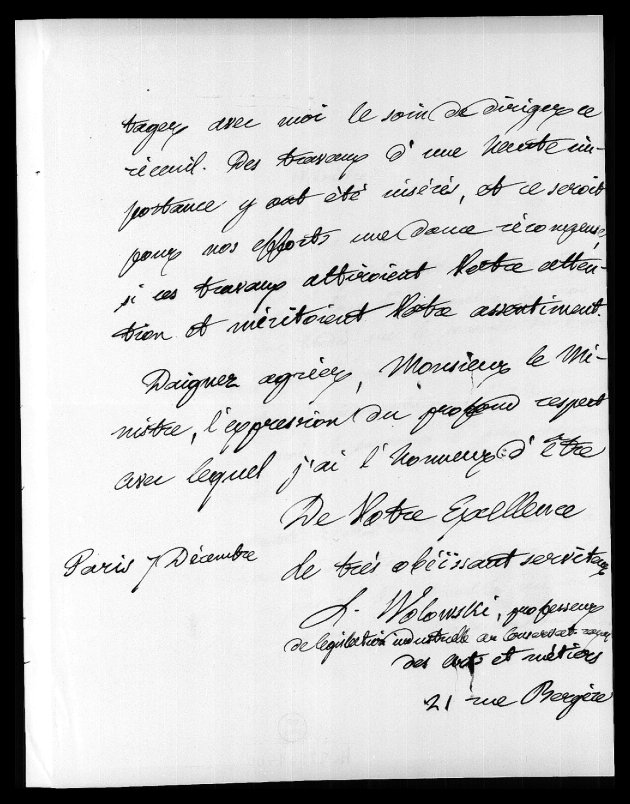 tager avec moi le soin de diriger ce
récueil. Des travaux d'une haute im-
portance y ont été insérés, et ce seroit
pour nos efforts une douce récompense,
si ces travaux attiroient Votre atten-
tion et méritoient Votre assentiment.
Daignez agréer, Monsieur le Mi-
nistre, l'expression du profond respect
avec lequel j'ai l'honneur d'être
De Votre Exellence
Paris 7 Décembre
le très obéïssant serviteur
L. Wolowski, professeur
de législation industrielle au Conservat.
des arts et métiers
21 rue Bergère